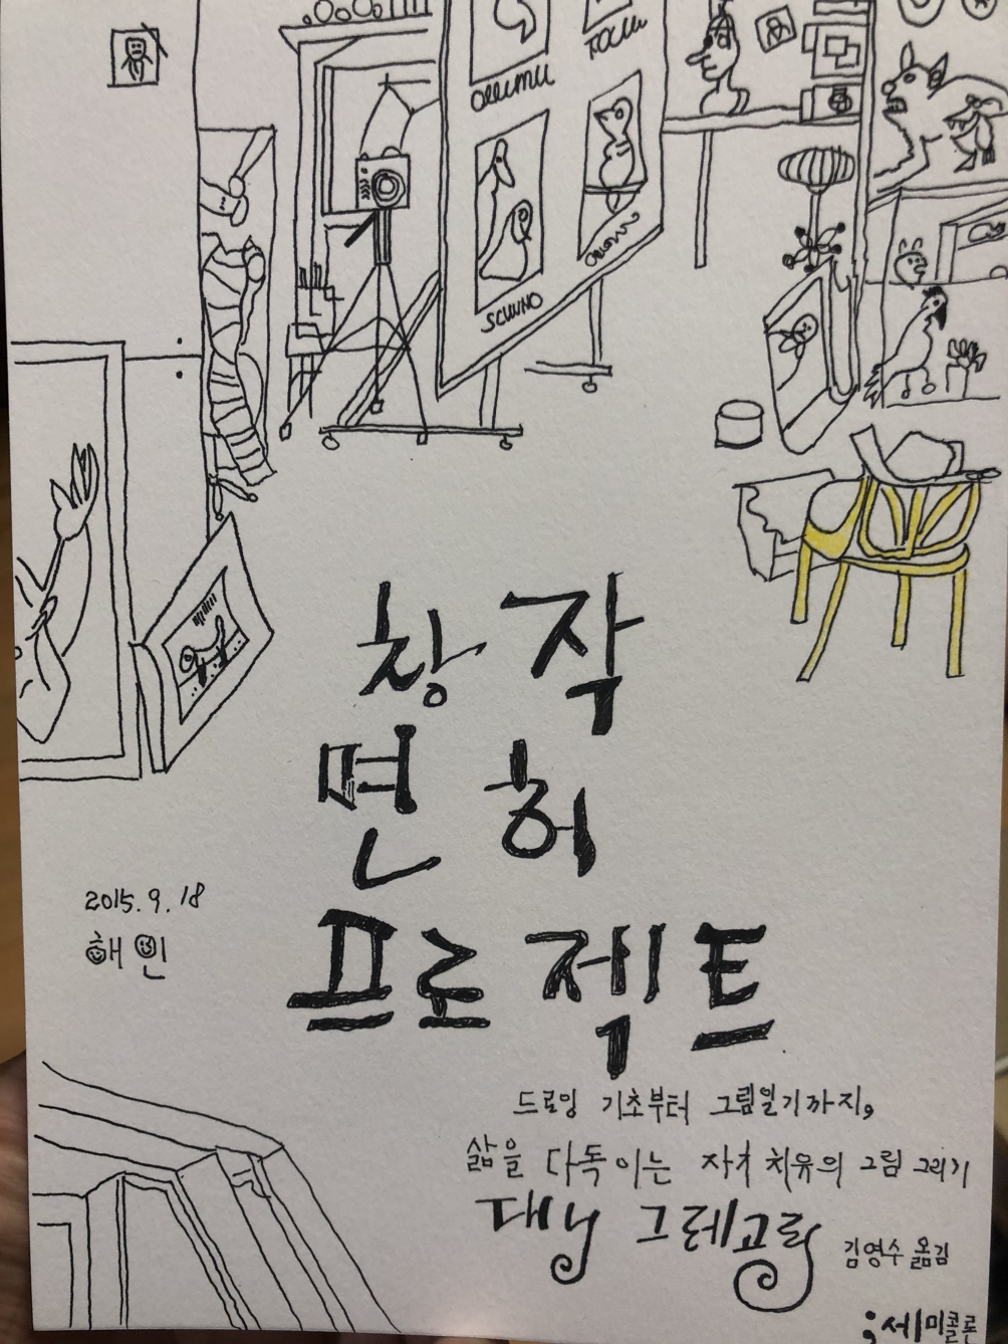 SCIUNO
창작
면허
프로젝트
2015.9.18
해인
드로잉 기초부터 그림일기까지,
삶을 다독이는 자가 치유의 그림 그리기
대니 그레고리
김영수 옮김
:세미콜론